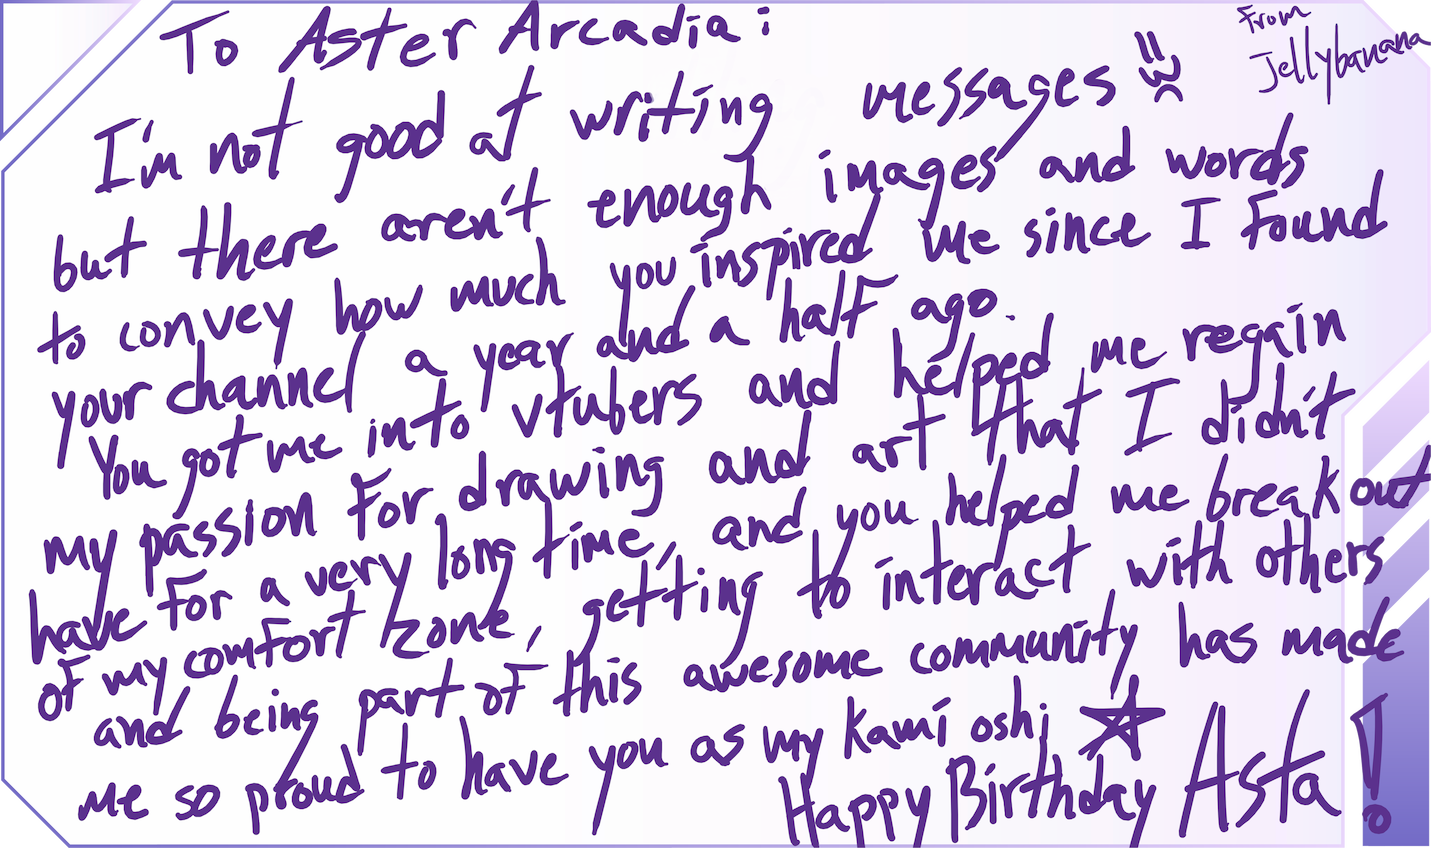 To Aster Arcadia:
From
Jellybanana
I'm not good at writing messages
but there aren't enough images and words
to convey how much you inspired me since I found
your channel a year and a half ago.
You got me into vtubers and helped me regain
my passion for drawing and art that I didn't
have for a very long time, and you helped me break out
of my comfort zone, getting to interact with others
and being part of this awesome community has made
me so proud to have you as my kami oshi
Happy Birthday Asta!